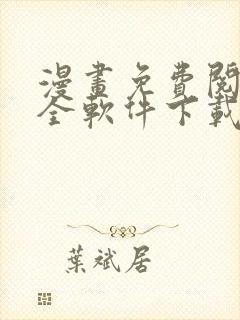 漫畫免費閱
全軟件下載
葉斌居